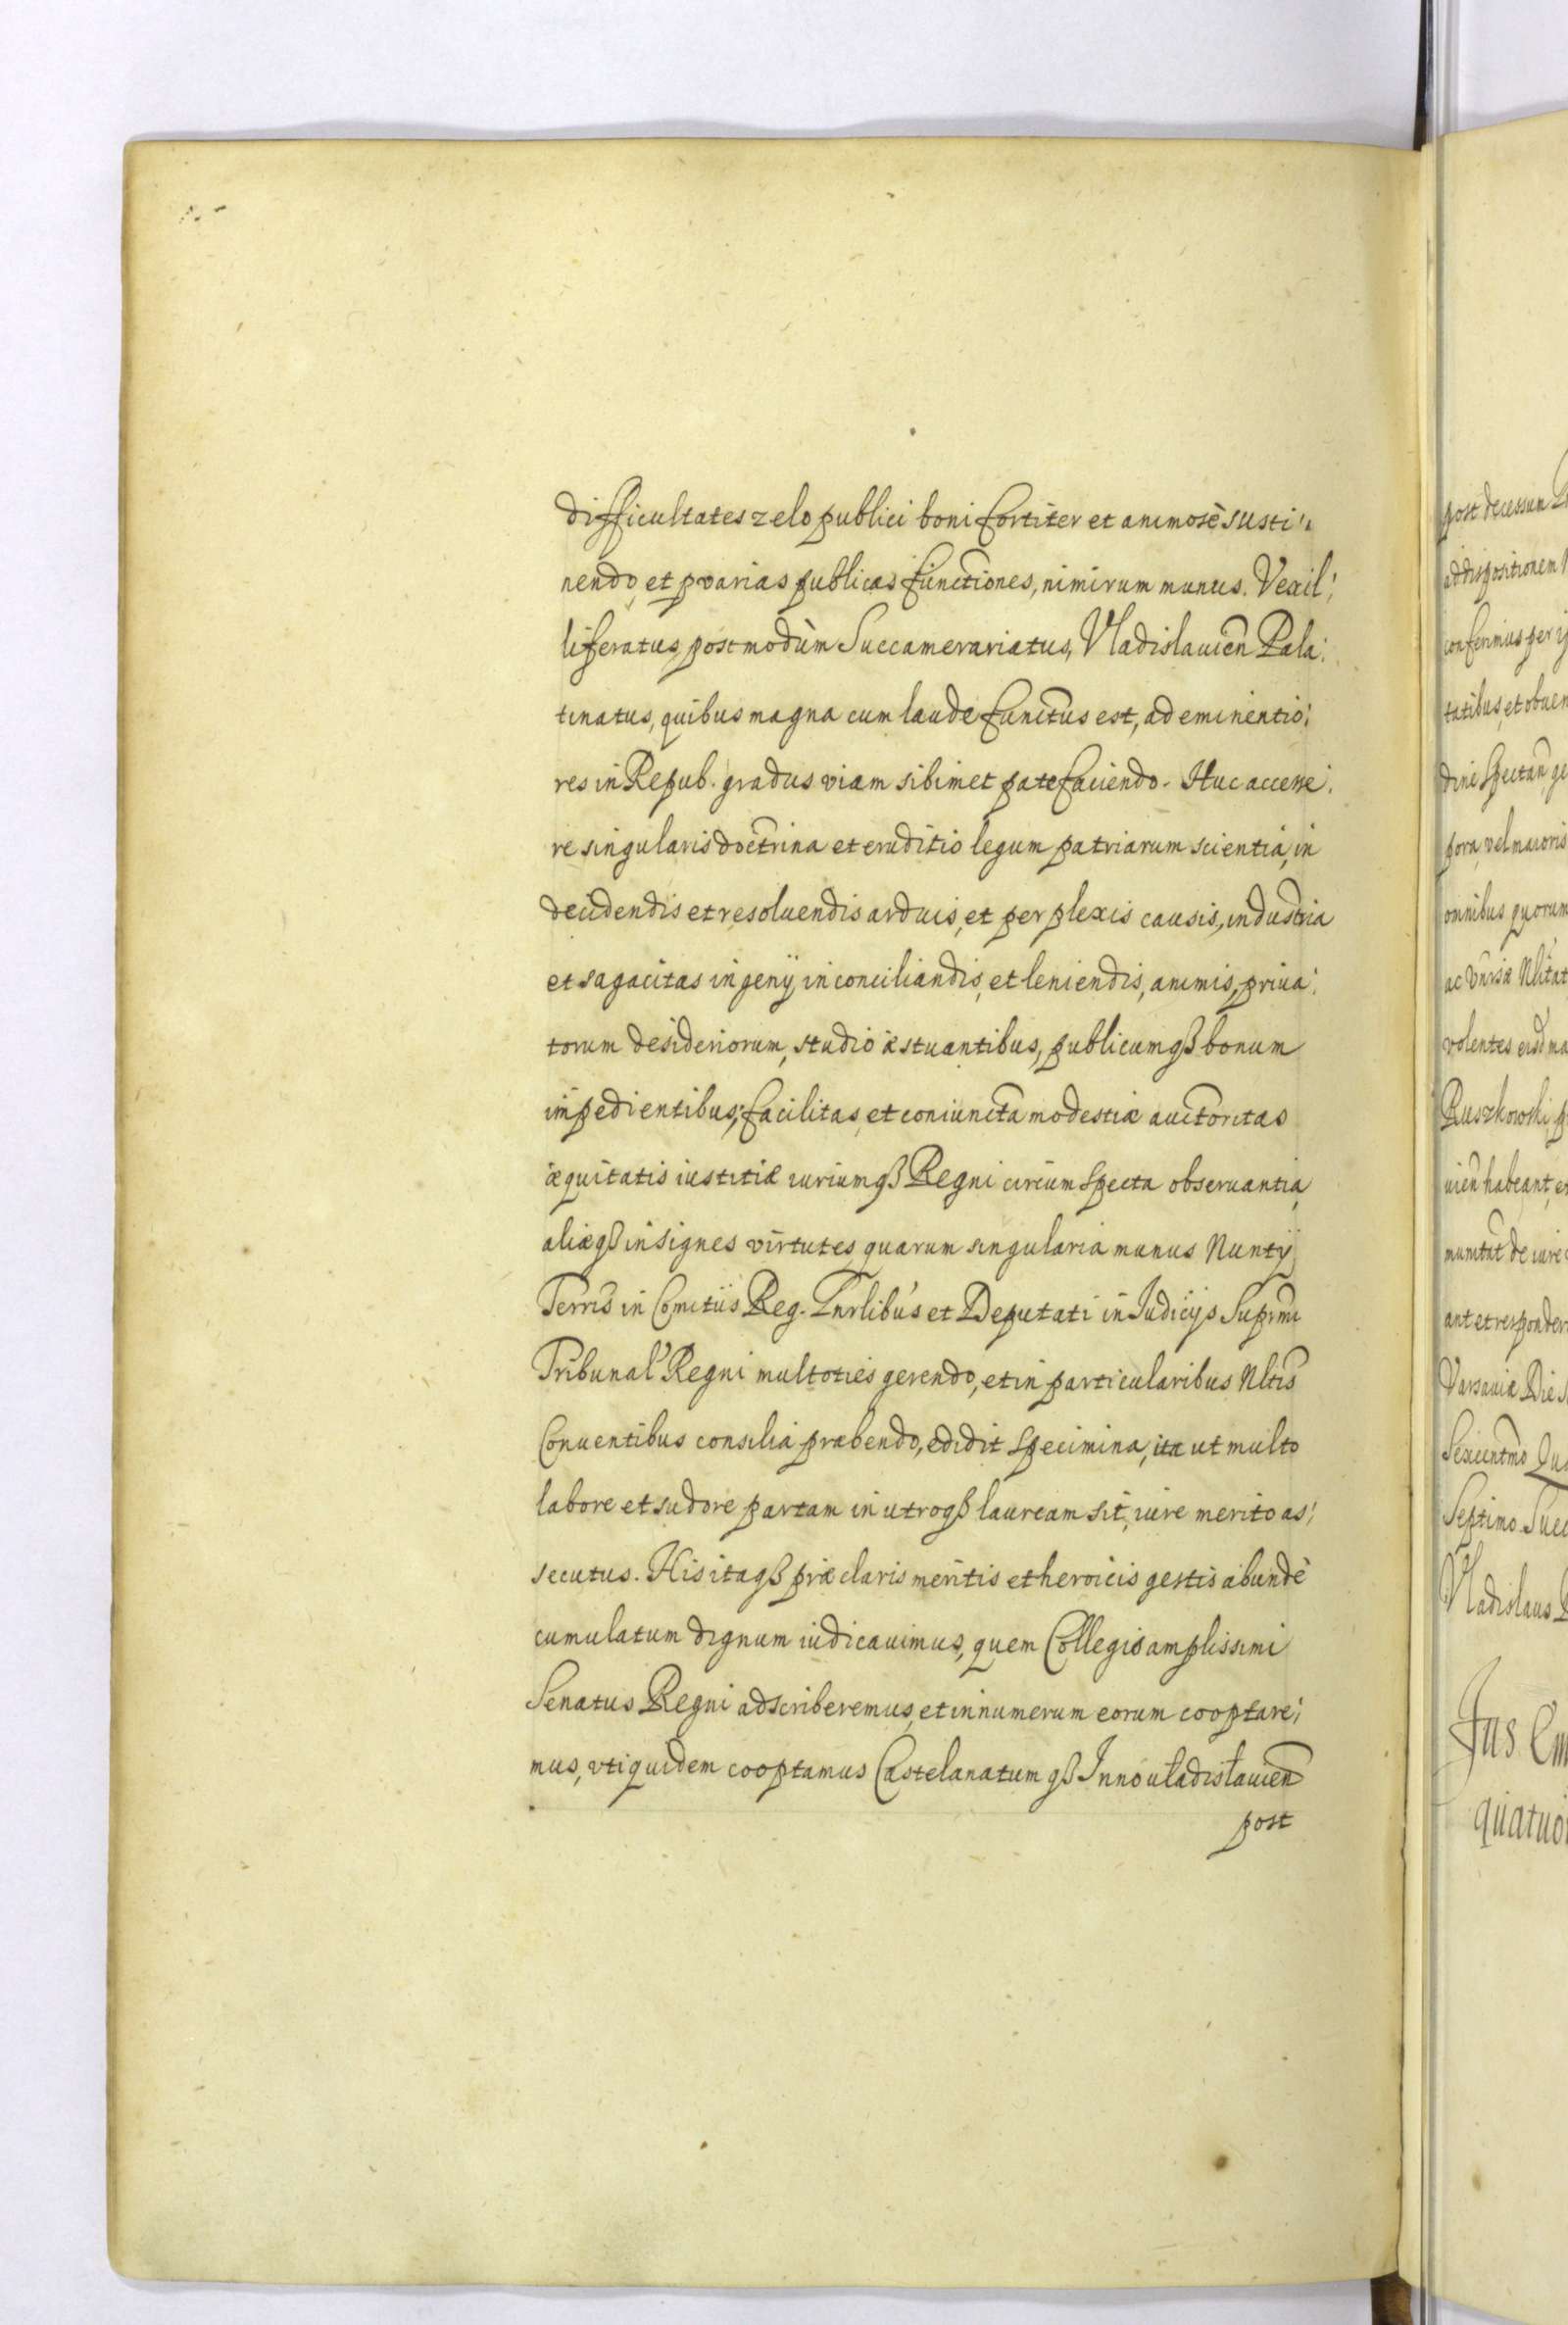 difficultates zelo publici boni fortiter et animosè susti:
nendo, et p varias publicas functiones, nimirum munus. Vexil:
liferatus, postmodùm Succamerariatus, Vladislauien Pala:
tinatus, quibus magna cum laude functus est, ad eminentio:
res in Repub. gradus viam sibimet patefaciendo. Huc accesse:
re singularis doctrina et eruditio legum patriarum scientia, in
decidendis et resoluendis arduis, et perplexis causis, industria
et sagacitas ingenij, in conciliandis, et leniendis, animis, priua:
torum desideriorum, studio æstuantibus, publicumqß bonum
impedientibus; facilitas, et coniuncta modestiæ auctoritas
æquitatis iustitiæ iuriumqß Regni circumspecta obseruantia,
aliæqß insignes virtutes, quarum singularia munus Nuntij
Terris in Comitiis Reg. Gnrlibus et Deputati in Iudicijs Suprmi
Tribunal Regni multoties gerendo, et in particularibus Nltis
Conuentibus consilia præbendo, edidit specimina, ita ut multo
labore et sudore partam in utroqß lauream sit, iure merito as:
secutus. His itaqß præclaris meritis et heroicis gestis abundè
cumulatum dignum iudicauimus, quem Collegio amplissimi
Senatus Regni adscriberemus, et in numerum eorum cooptare:
mus, vti quidem cooptamus Castelanatum qß Innouladislauien
post
post decessum
ad dispositionem
conferimus per
tatibus, et obuen
dine spectan, ge
pora, vel maioris
omnibus quorum
ac Vnrsæ Nlitat
volentes eisd ma
Ruszkowski p
uien habeant, et
munitat de iure
ant et responder
Varsauiæ Die
Sexcentmo Qua
Septimo Suec
Vladislaus
Jus
quatuo